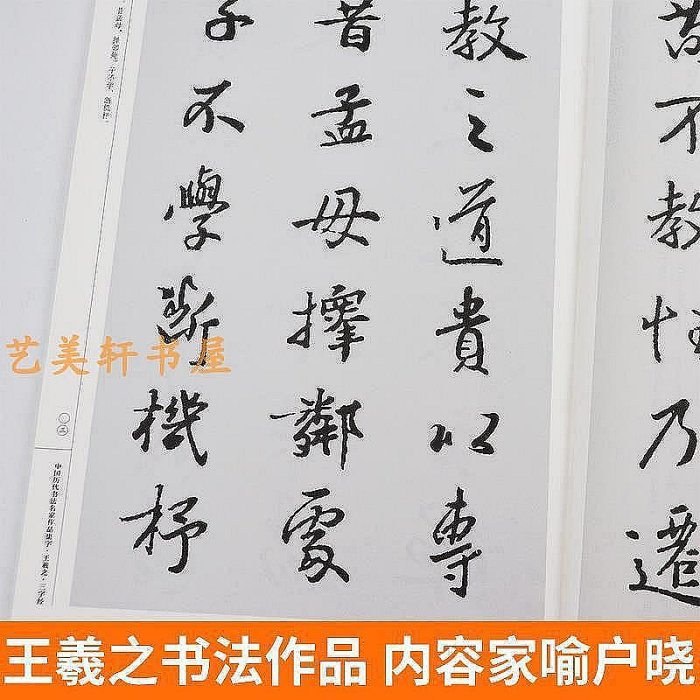 苟不教性乃遷
教之道貴以專
昔孟母擇鄰處
子不學斷機杼
昔孟母,择邻处。子不学,断机杼。
〇三
中国历代书法名家作品集字·王羲之·三字经
艺美轩书屋
王羲之书法作品 内容家喻户晓